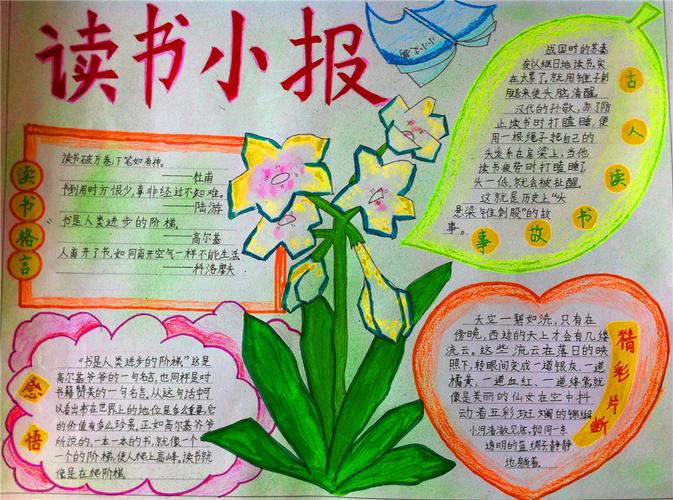 读书小报
读书格言
读书破万卷,下笔如有神。
——杜甫
书到用时方恨少,事非经过不知难。
——陆游
书是人类进步的阶梯。
——高尔基
人离开了书,如同离开空气一样不能生活
——科洛廖夫
古人读书故事
战国时的苏秦
夜以继日地读书,实
在太累了,就用锥子刺
腿来使头脑清醒。
汉代的孙敬,为了防
止读书时打瞌睡,便
用一根绳子把自己的
头发系在房梁上,当他
读书疲劳时打瞌睡了
头一低,就会被扯醒。
这就是历史上“头
悬梁锥刺股”的故
事。
感悟
“书是人类进步的阶梯。”这是
高尔基爷爷的一句名言,也同样是对
书籍赞美的一句名言,从这句话中就
可以看出书在世界上的地位是多么重要,它
的价值有多么珍贵。正如高尔基爷爷
所说的,一本一本的书,就像一个一
个的阶梯,使人爬上高峰。读书就
像是在爬阶梯。
精彩片断
天空一碧如洗,只有在
傍晚,西边的天上才会有几缕
流云。这些流云在落日的映
照下,转眼间变成一道银灰、一道
橘黄、一道血红、一道绛紫,就
像是美丽的仙女在空中抖
动着五彩斑斓的锦缎
小河清澈见底,如同一条
透明的蓝绸子,静静
地躺着。